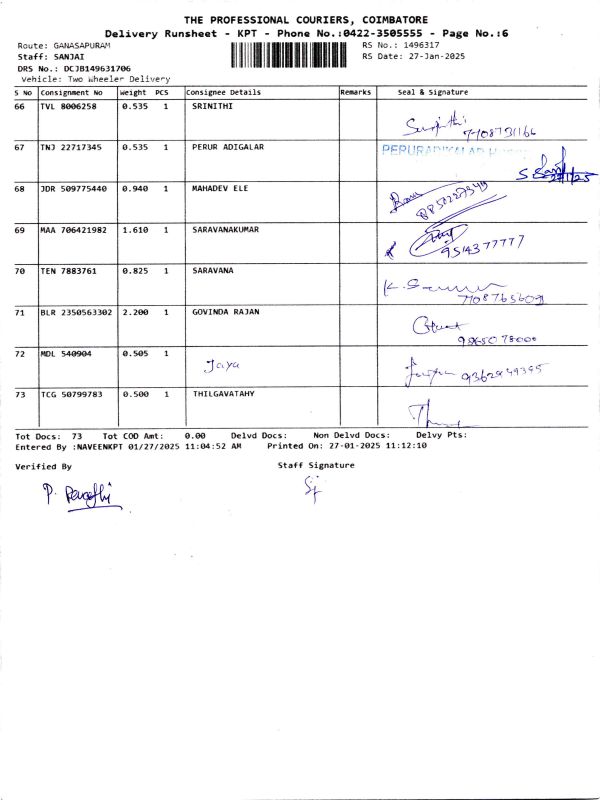 THE PROFESSIONAL COURIERS, COIMBATORE
Delivery Runsheet - KPT - Phone No.:0422-3505555 - Page No.:6
Route: GANASAPURAM RS No.: 1496317
Staff: SANJAI RS Date: 27-Jan-2025
DRS No.: DCJB149631706
Vehicle: Two Wheeler Delivery
S No Consignment No Weight PCS Consignee Details Remarks Seal & Signature
66 TVL 8006258 0.535 1 SRINITHI
7708731166
67 TNJ 22717345 0.535 1 PERUR ADIGALAR
68 JDR 509775440 0.940 1 MAHADEV ELE
69 MAA 706421982 1.610 1 SARAVANAKUMAR
9514377777
70 TEN 7883761 0.825 1 SARAVANA
71 BLR 2350563302 2.200 1 GOVINDA RAJAN
72 MDL 540904 0.505 1 Jaya
73 TCG 50799783 0.500 1 THILGAVATAHY
Tot Docs: 73 Tot COD Amt: 0.00 Delvd Docs: Non Delvd Docs: Delvy Pts:
Entered By :NAVEENKPT 01/27/2025 11:04:52 AM Printed On: 27-01-2025 11:12:10
Verified By Staff Signature